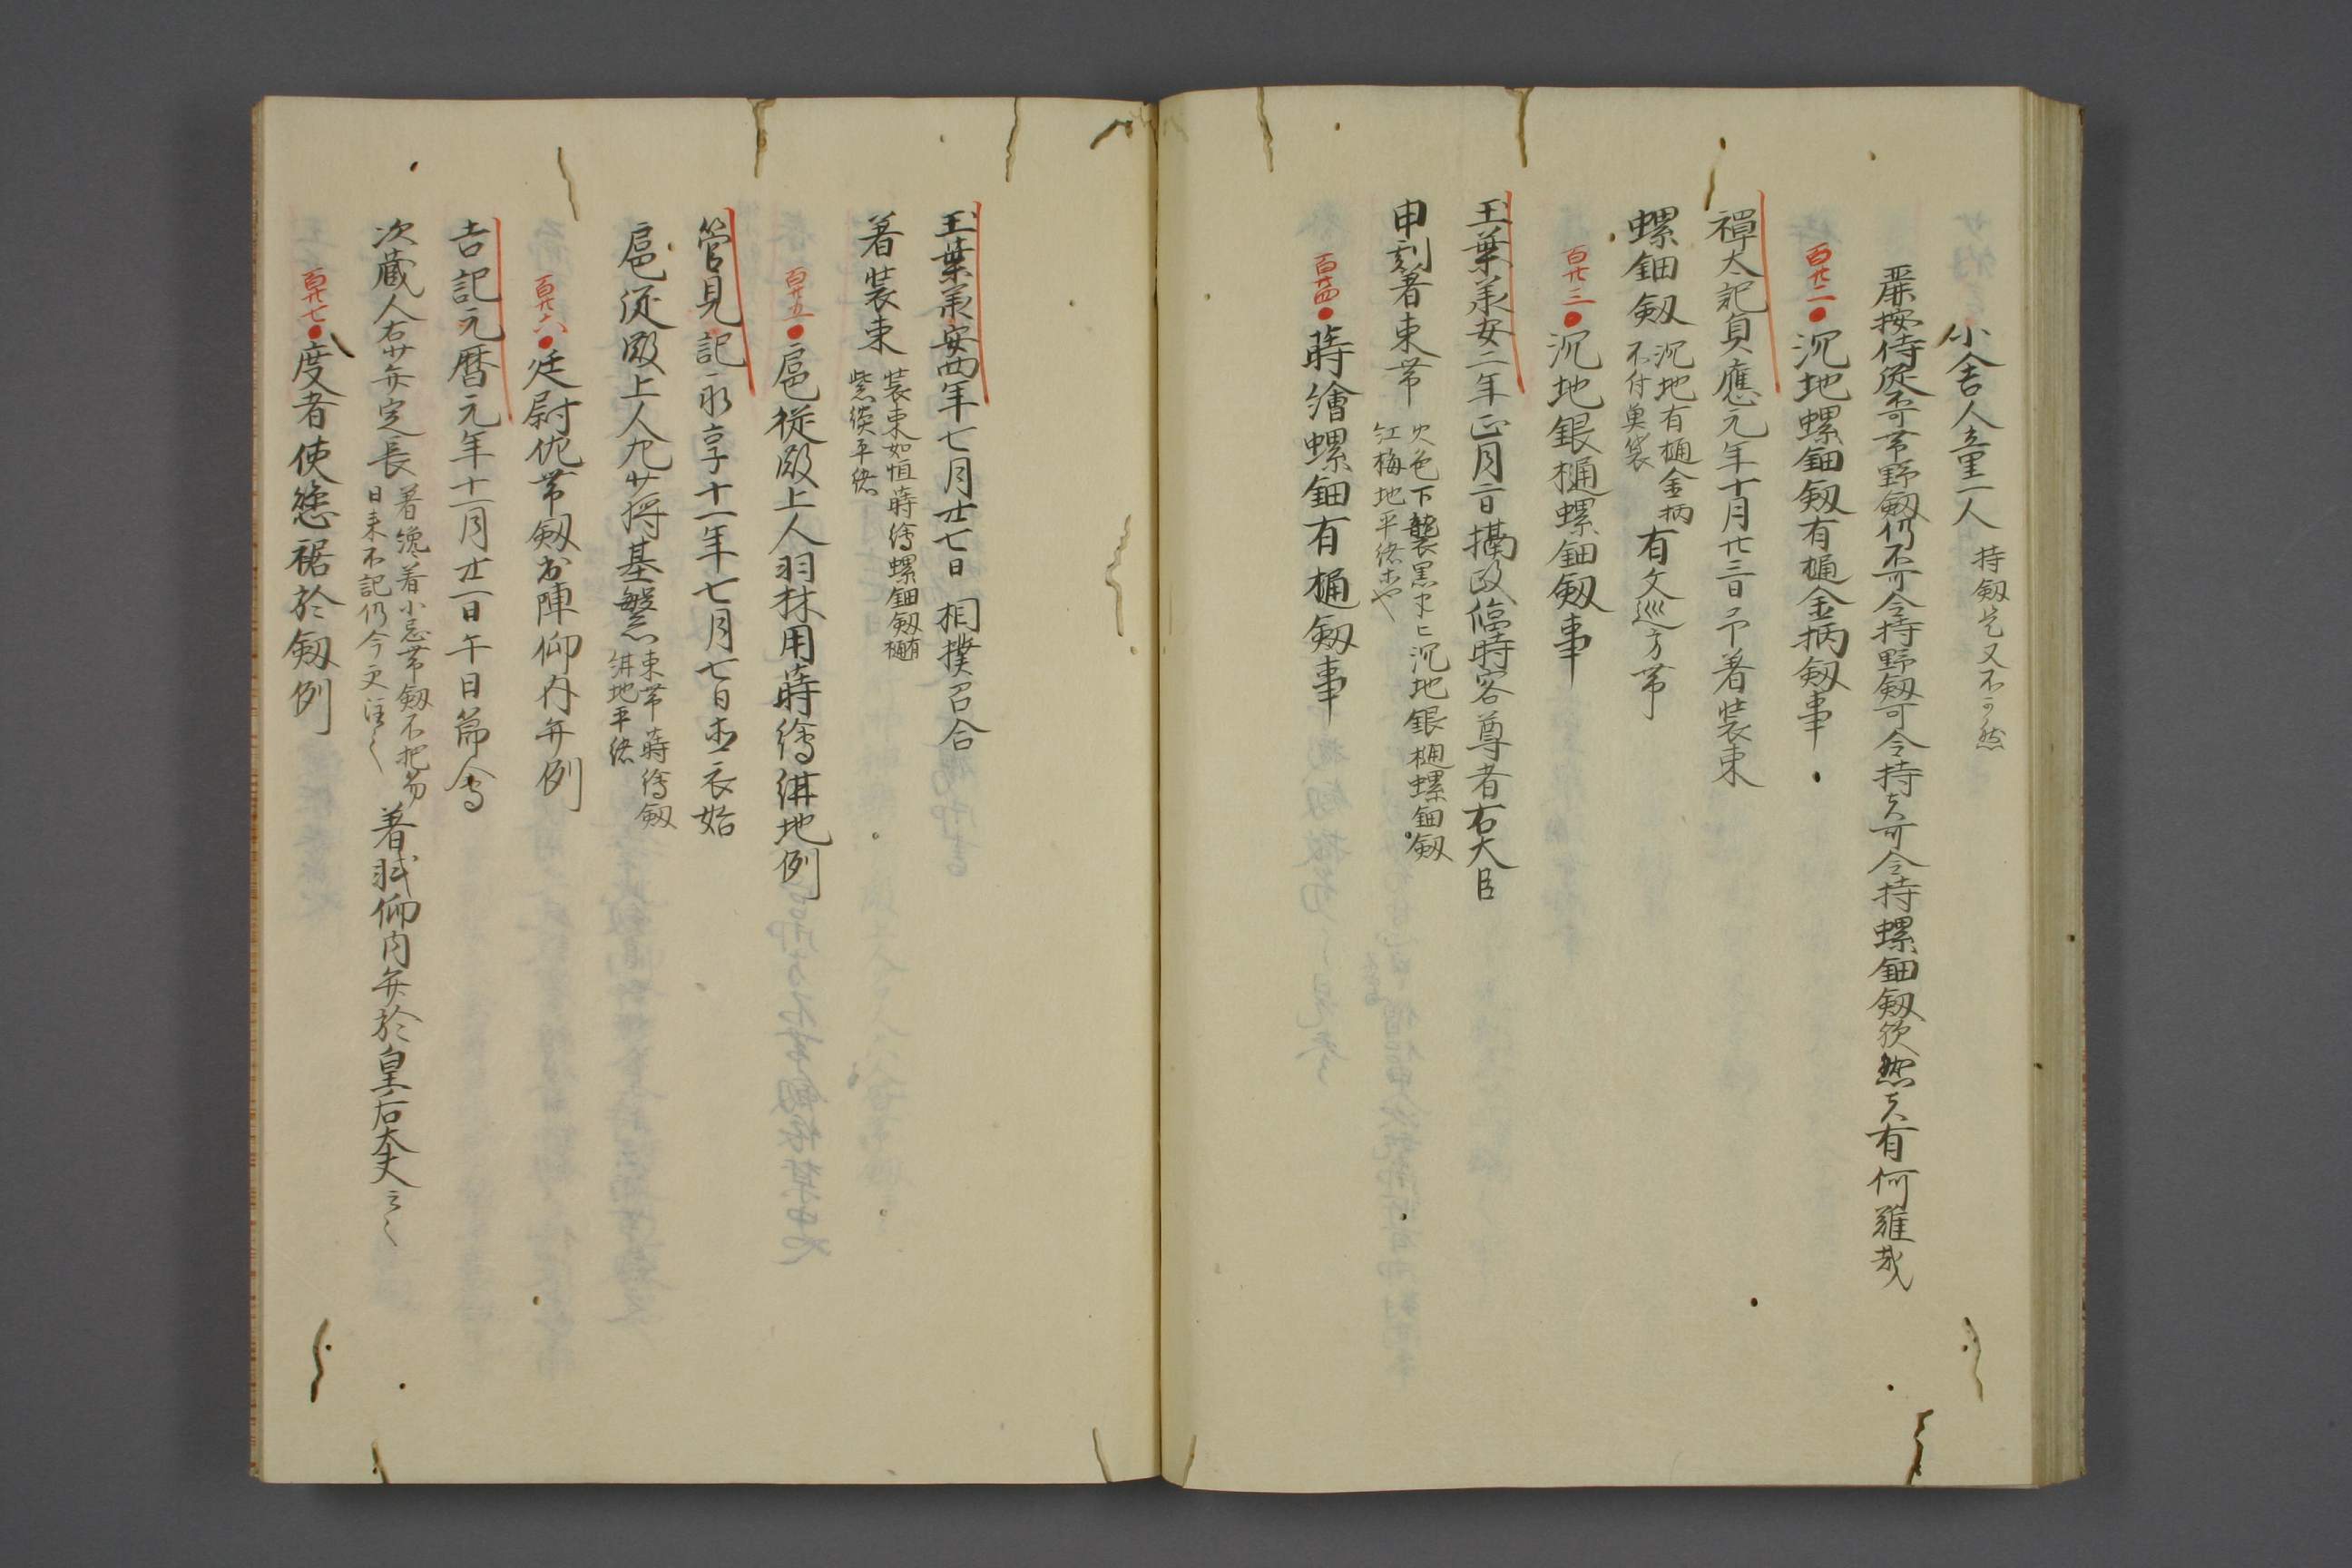 小舎人童一人 持釼是又不可然
厳按侍従不可帯野釼仍不可令持野釼可令持夫可令持螺鈿釼欤然夫有何難哉
百廿二●沉地螺鈿釼有樋金柄釼事
禅大記貞應元年十月廿三日予著装束
螺鈿釼 沉地有樋金柄
不付魚袋 有文巡方帯
百廿三●沉地銀樋螺鈿釼事
玉葉承安二年正月二日摂政臨時客尊者右大臣
申刻著束帯 火色下襲
紅梅地平緒 沉地銀樋螺鈿釼
百廿四●蒔繪螺鈿有樋釼事
玉葉承安四年七月廿七日 相撲召合
著装束 装束如恒蒔繪螺鈿釼有樋
紫緂平緒
百廿五●扈従殿上人羽林用蒔繪紺地例
管見記永享十一年七月七日直衣始
扈従殿上人九少将基盤 束帯蒔繪釼
紺地平緒
百廿六●廷尉佐帯釼於陣仰内弁例
吉記元暦元年十一月廿一日午日節會
次蔵人右少弁定長 著纔着小忌帯釼不把笏
日来不記仍今更注之 著軾仰内弁於皇后大夫云々
百廿七●度者使懸裾於釼例